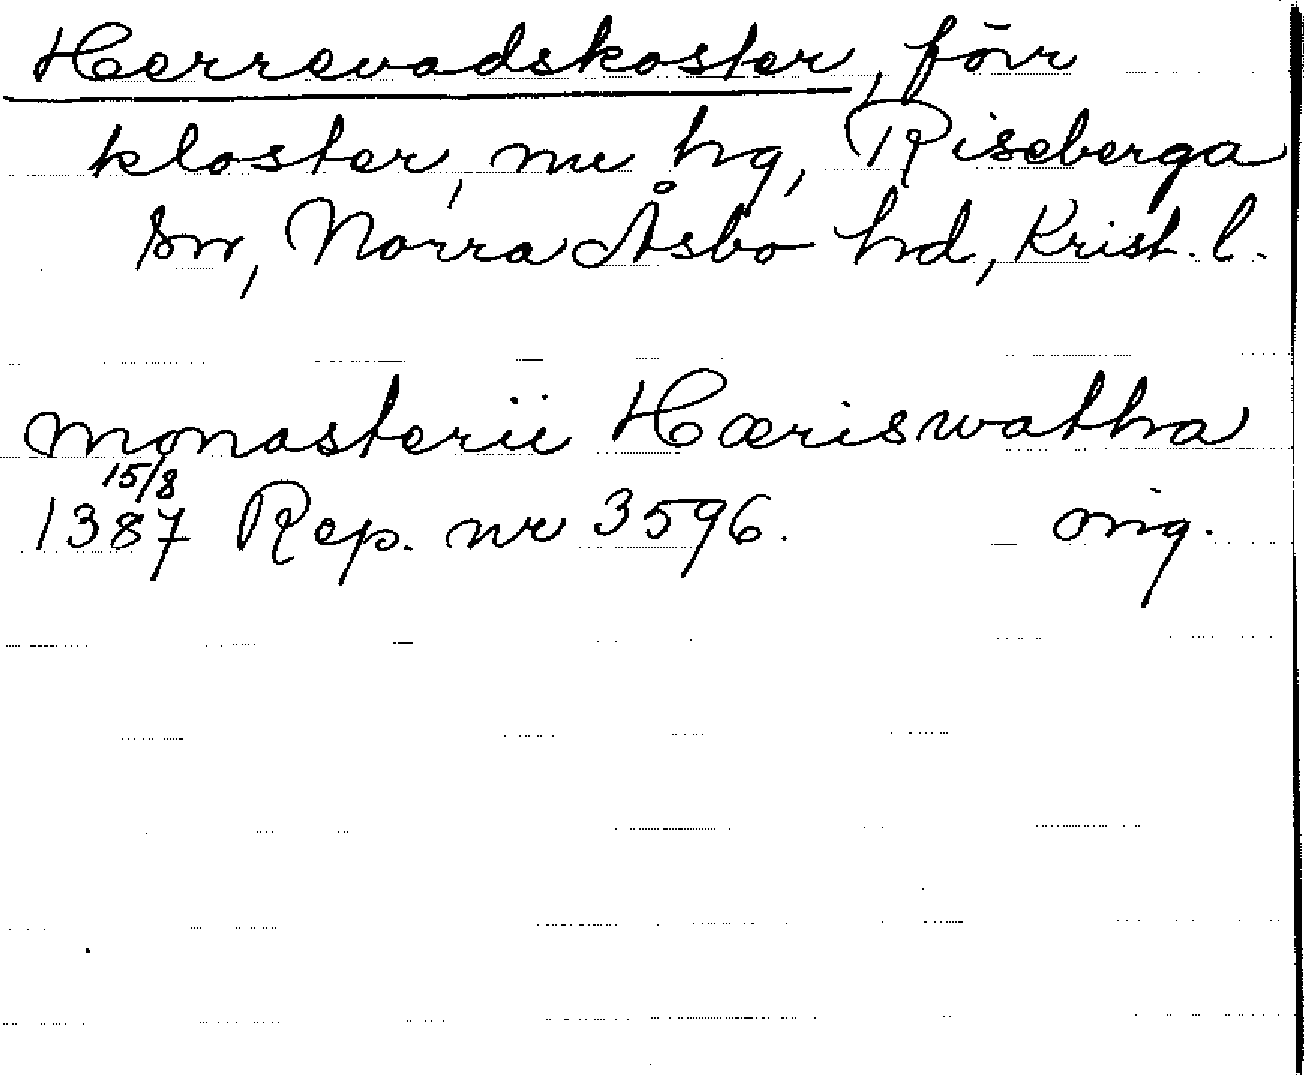 Herrevadskoster, förr
kloster, nu hg, Riseberga
sn, Norra Åsbo hd, Krist. l.
monasterii Hæriswatha
15/8
1387 Rep. nr 3596. orig.